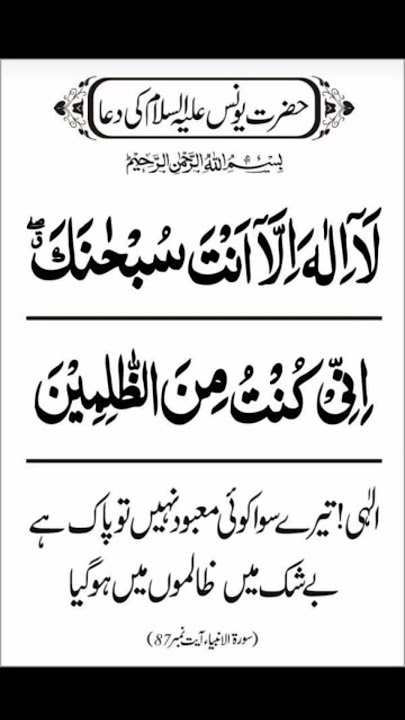 حضرت یونس علیہ السلام کی دعا
بِسْمِ اللهِ الرَّحْمٰنِ الرَّحِيْمِ
لَآ اِلٰهَ اِلَّآ اَنْتَ سُبْحٰنَكَ ۖق
اِنِّیْ كُنْتُ مِنَ الظّٰلِمِیْنَ
الٰہی! تیرے سوا کوئی معبود نہیں تو پاک ہے
بے شک میں ظالموں میں ہو گیا
(سورۃ الانبیاء آیت نمبر 87)